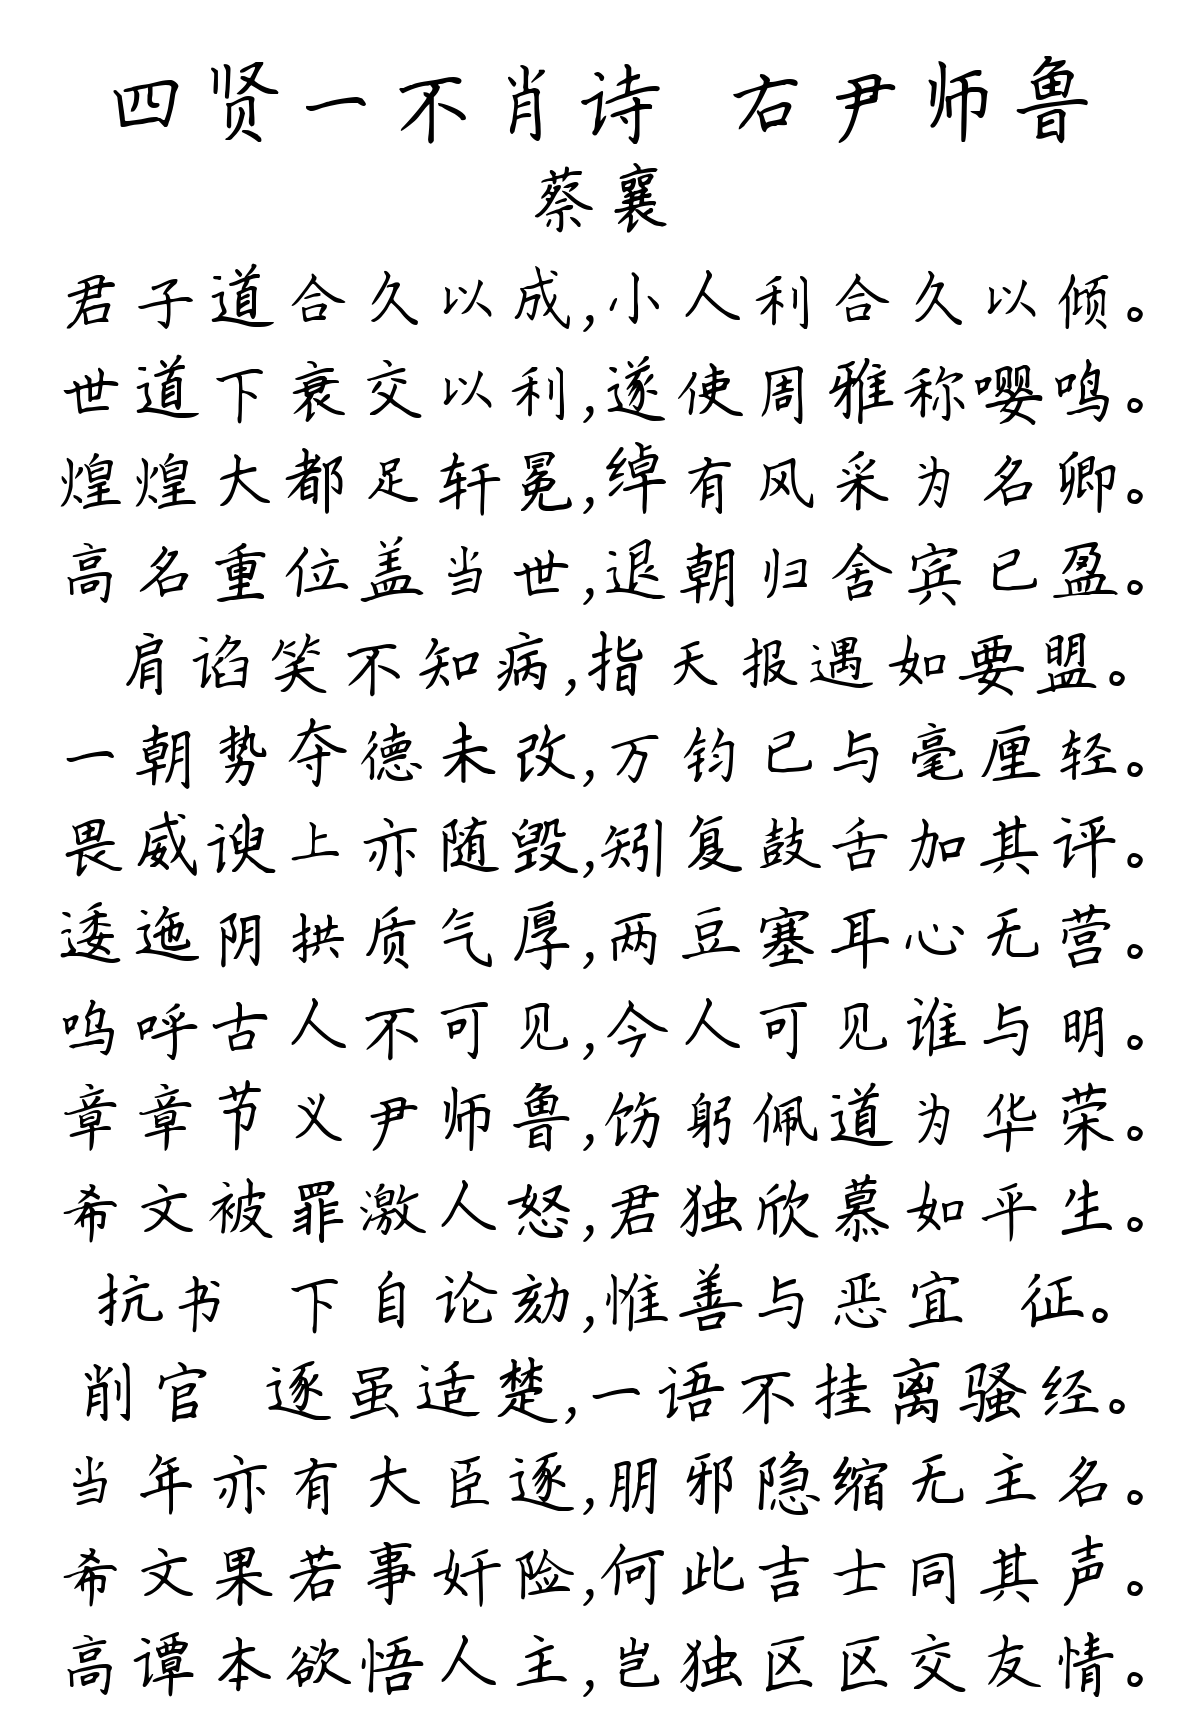 四贤一不肖诗 右尹师鲁
蔡襄
君子道合久以成,小人利合久以倾。
世道下衰交以利,遂使周雅称嘤鸣。
煌煌大都足轩冕,绰有风采为名卿。
高名重位盖当世,退朝归舍宾已盈。
肩谄笑不知病,指天报遇如要盟。
一朝势夺德未改,万钧已与毫厘轻。
畏威谀上亦随毁,矧复鼓舌加其评。
逶迤阴拱质气厚,两豆塞耳心无营。
呜呼古人不可见,今人可见谁与明。
章章节义尹师鲁,饬躬佩道为华荣。
希文被罪激人怒,君独欣慕如平生。
抗书 下自论劾,惟善与恶宜 征。
削官 逐虽适楚,一语不挂离骚经。
当年亦有大臣逐,朋邪隐缩无主名。
希文果若事奸险,何此吉士同其声。
高谭本欲悟人主,岂独区区交友情。